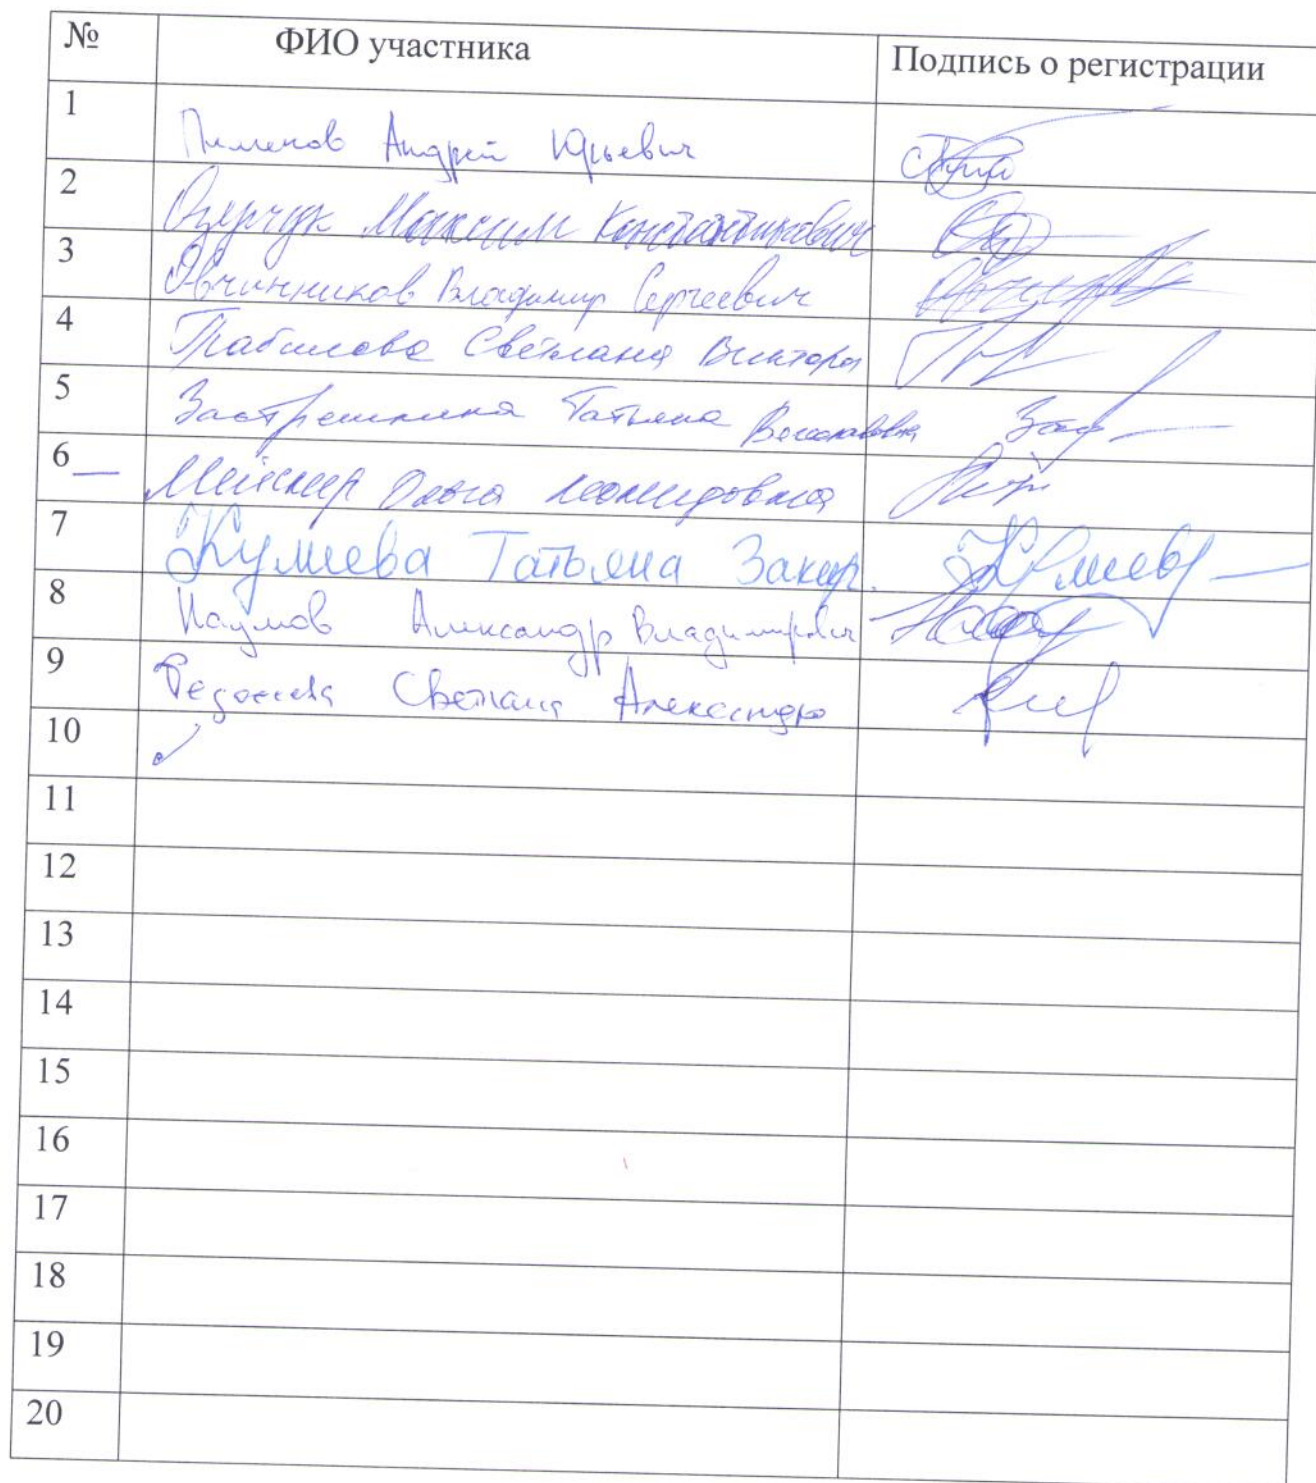 № ФИО участника Подпись о регистрации
1 Пименов Андрей Юрьевич
2 Максим Константинович
3 Овчинников Владимир Сергеевич
4 Светлана Виктор
5 Татьяна
6 Мейснер Ольга Леонидовна
7 Кумиева Татьяна Закир.
8 Наумов Александр Владимирович
9 Светлана Александро
10
11
12
13
14
15
16
17
18
19
20